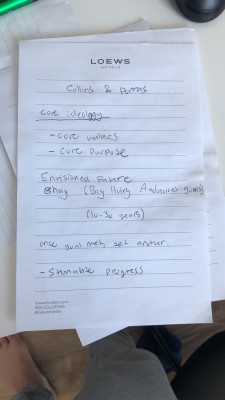 LOEWS
HOTELS
Collins & Porras
Core ideology
- Core values
- Core Purpose
Envisioned future
Bhag (Big Hairy Audacious goals)
(10-30 years)
once goal met, set another.
- Stimulate progress